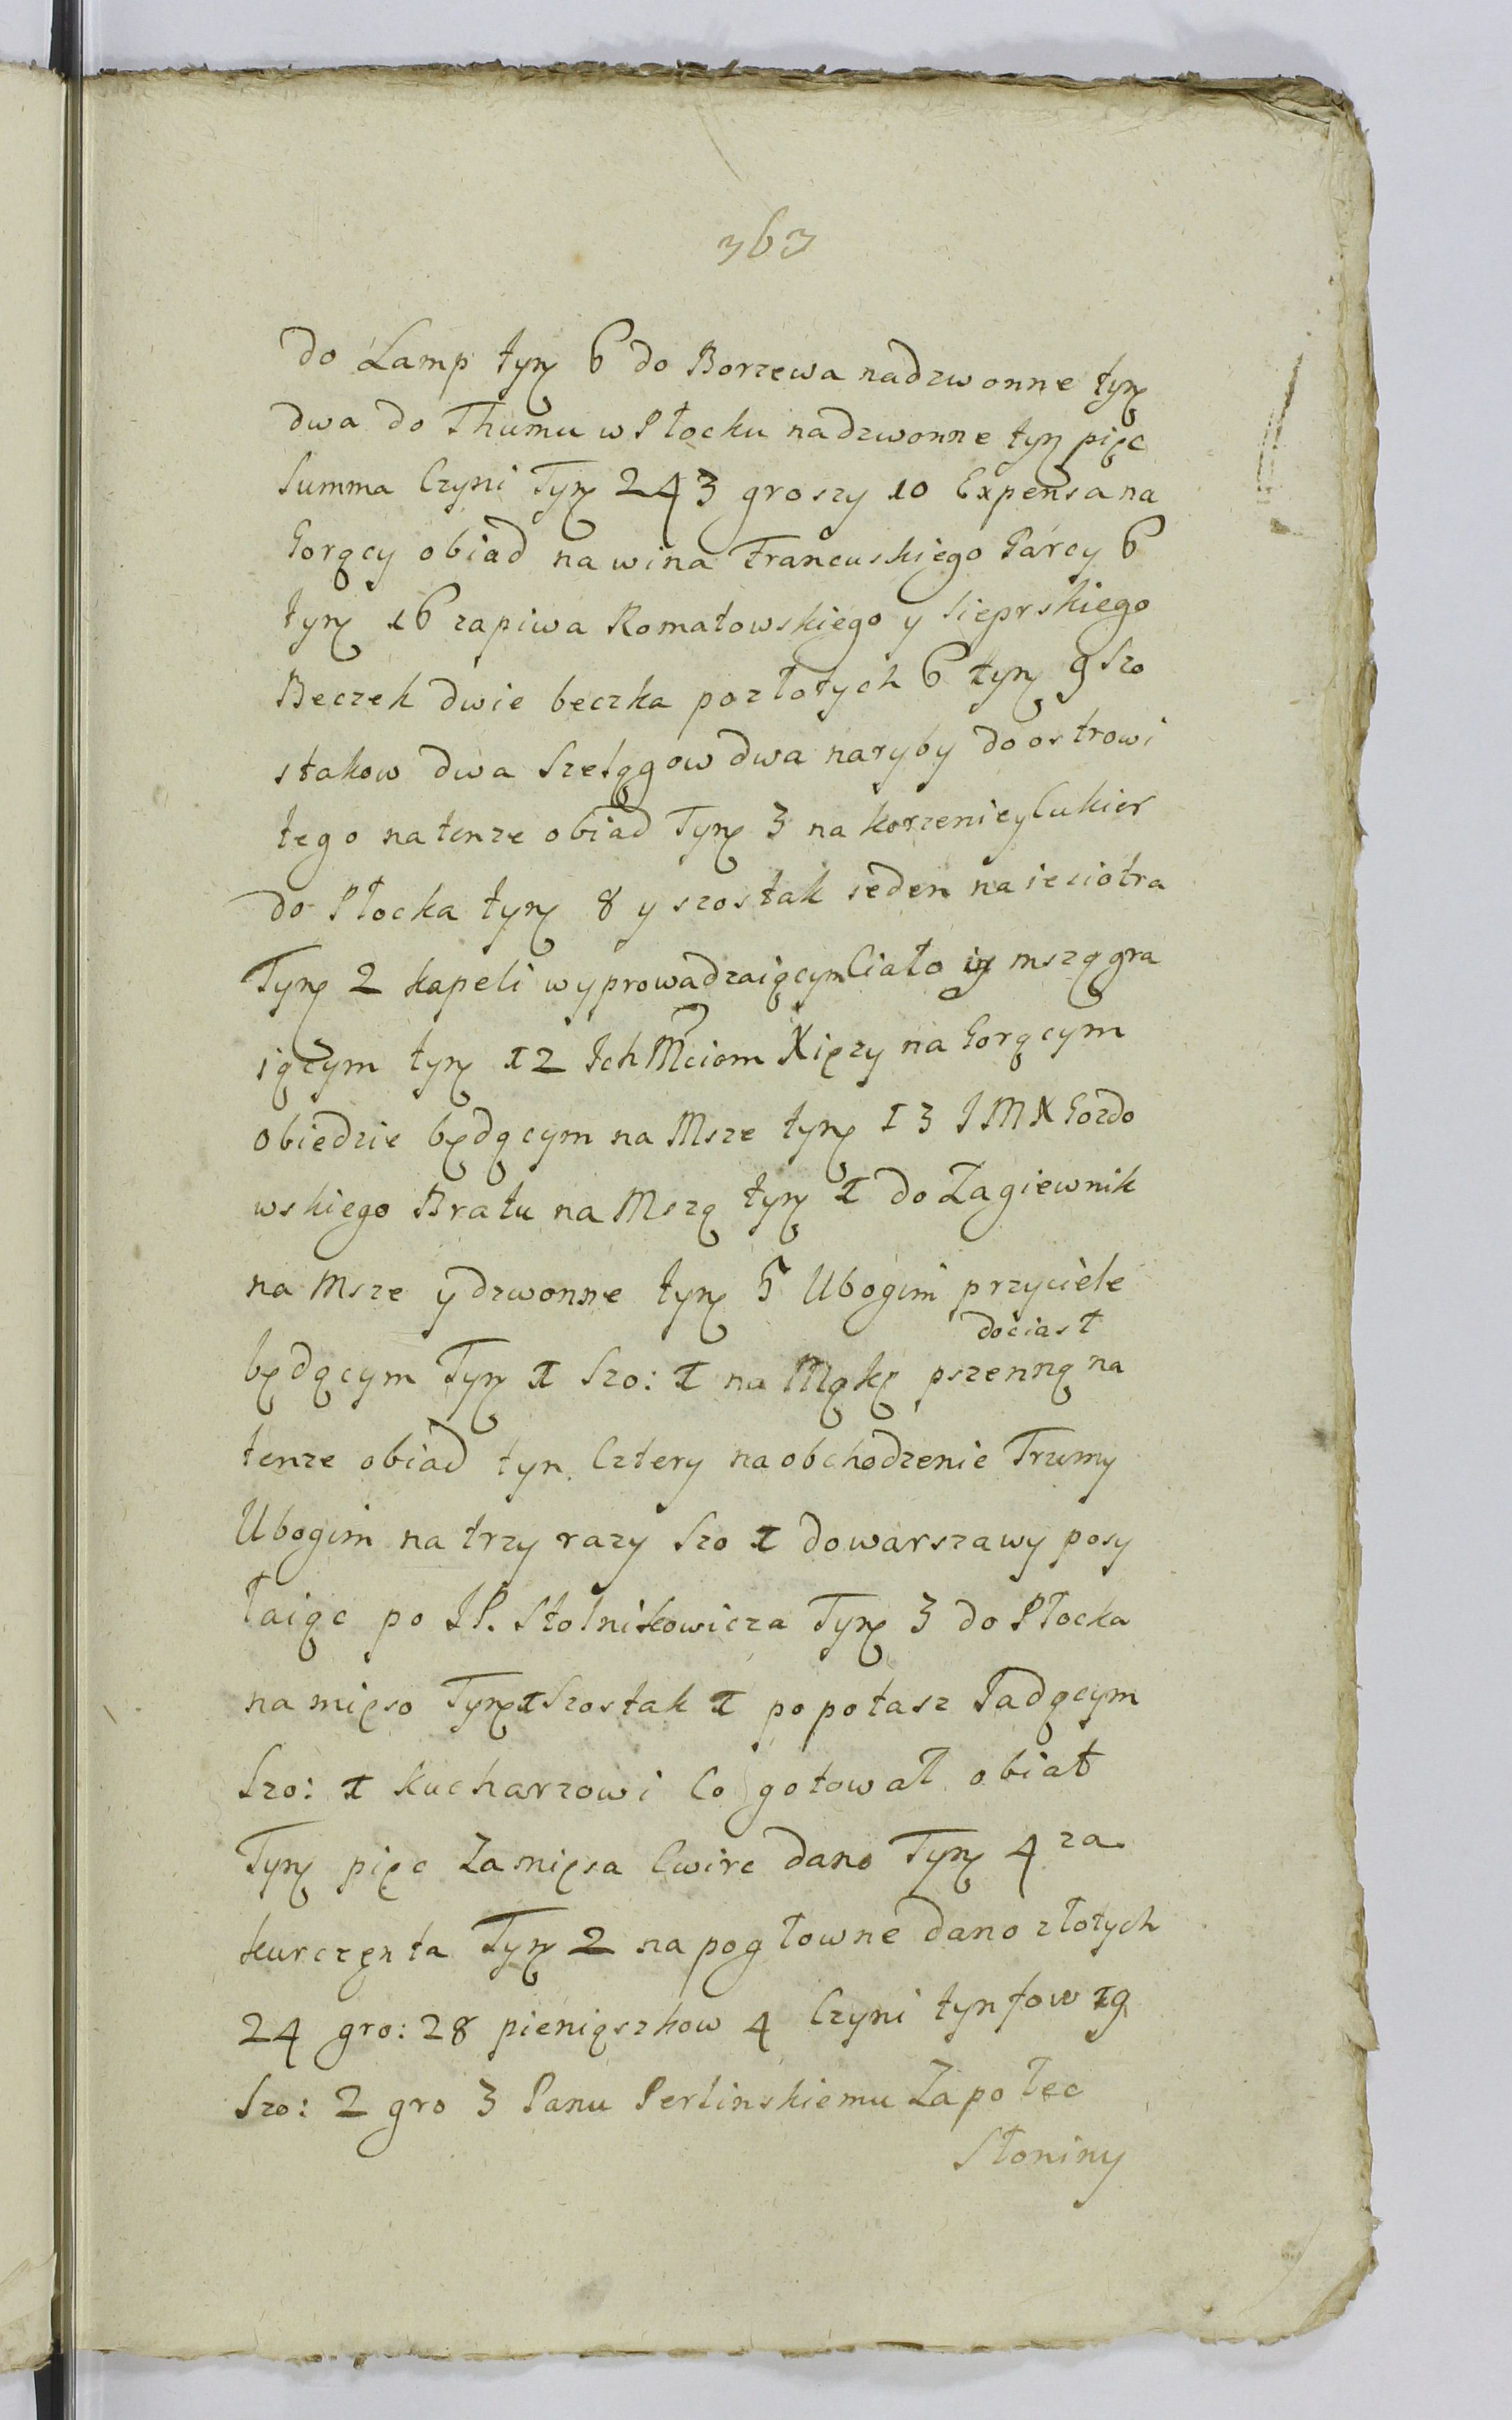 363
do Lamp tynẹ 6 do Borzewa nadzwonne tynẹ
dwa do Thumu w Płocku nadzwonne tynẹ pięc
Summa Czyni Tynẹ 243 groszy 10 Expensa na
Gorący obiad na wina Francuskiego Garcy 6
tynẹ 16 zapiwa Romatowskiego y Sieprskiego
Beczek dwie beczka pozłotych 6 tynẹ 9 Szo
stakow dwa Szelągow dwa naryby do ostrowi
tego na tenze obiad Tynẹ 3 na korzenie y Cukier
do Płocka tynẹ 8 y szostak ieden na iesiotra
Tynẹ 2 kapeli wyprowadzaiącym Ciało y mszą gra
iącym tynẹ 12 Ich Mciom Xięzy na Gorącym
obiedzie będącym na Msze tynẹ 13 J M X Gozdo
wskiego Bratu na Mszą tynẹ 1 do Łagiewnik
na Msze y dzwonne tynẹ 5 Ubogim przyciele
dociast
będącym Tynẹ 1 Szo: 1 na Mąkę pszenną na
tenze obiad tyn. Cztery na obchodzenie Trumy
Ubogim na trzy razy Szo 1 do warszawy posy
łaiąc po JP. Stolnikowicza Tynẹ 3 do Płocka
na mięso Tynẹ 1 Szostak 1 po potasz Iadącym
Szo: 1 Kucharzowi Co gotował obiat
Tynẹ pięc Za mięsa Cwirc dano Tynẹ 4 za
kurczęnta Tynẹ 2 na pogłowne dano złotych
24 gro: 28 pieniąszkow 4 Czyni tynfow 19
Szo: 2 gro 3 Panu Perlinskiemu Za połec
Słoniny